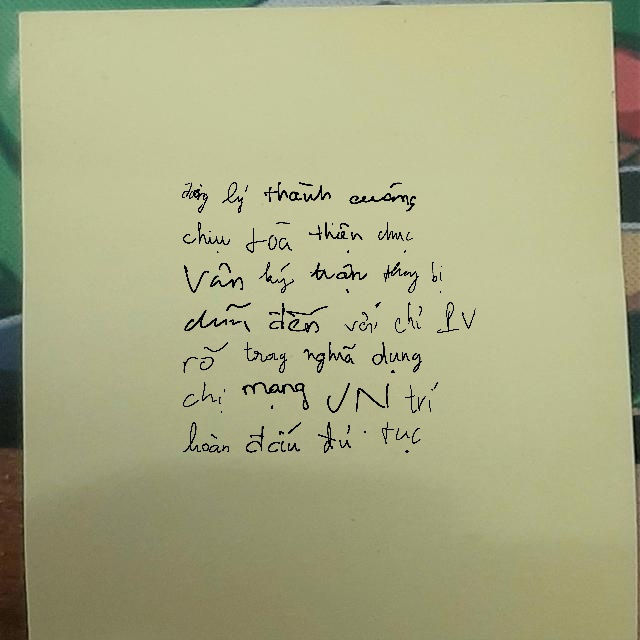 lý thành cương
chịu toà thiện chục
Vân ký trận từng bị
đến với chỉ IV
rõ trong nghĩa dụng
chị mạng VN trí
hoàn đấu đủ tục